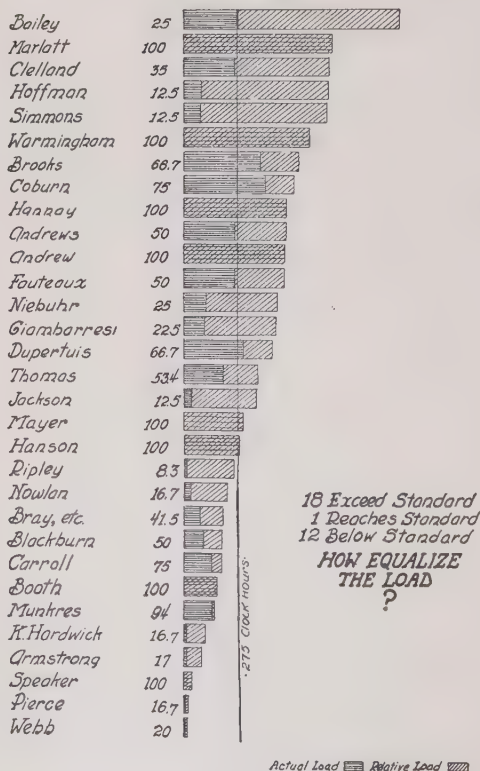 Bailey 25
Marlatt 100
Clelland 35
Hoffman 12.5
Simmons 12.5
Warmingham 100
Brooks 66.7
Coburn 75
Hannay 100
Andrews 50
Andrew 100
Fauteaux 50
Niebuhr 25
Giambarresi 22.5
Dupertuis 66.7
Thomas 53.4
Jackson 12.5
Mayer 100
Hanson 100
Ripley 8.3
Nowlan 16.7
Bray, etc. 41.5
Blackburn 50
Carroll 75
Booth 100
Munkres 94
K. Hardwick 16.7
Armstrong 17
Speaker 100
Pierce 16.7
Webb 20
.275 CLOCK HOURS.
18 Exceed Standard
1 Reaches Standard
12 Below Standard
HOW EQUALIZE
THE LOAD
?
Actual Load Relative Load